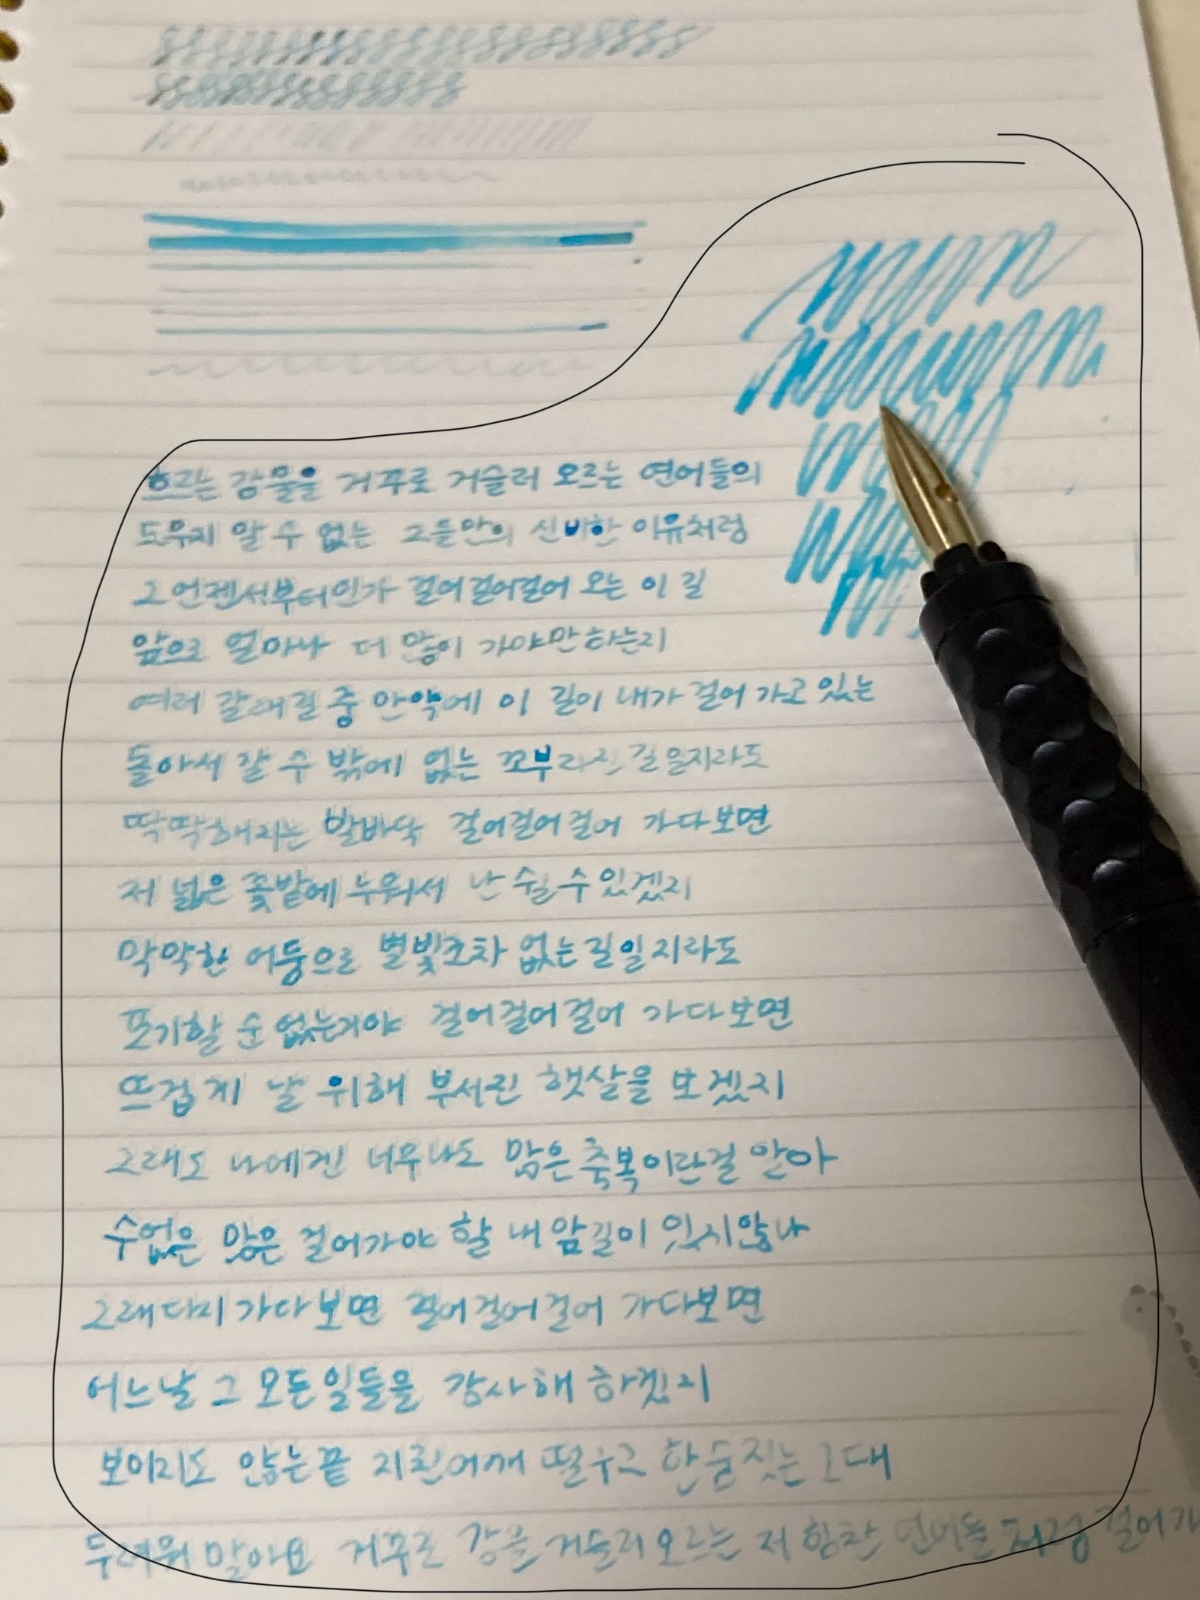 흐르는 강물을 거꾸로 거슬러 오르는 연어들의
도무지 알 수 없는 그들만의 신비한 이유처럼
그 언젠서부터인가 걸어걸어걸어 오는 이 길
앞으로 얼마나 더 많이 가야만하는지
여러 갈래길 중 만약에 이 길이 내가 걸어 가고 있는
돌아서 갈 수 밖에 없는 꼬부라진 길 을지라도
딱딱해지는 발바닥 걸어걸어걸어 가다보면
저 넓은 꽃밭에 누워서 난 쉴 수 있겠지
막막한 어둠으로 별빛조차 없는길일지라도
포기할 순 없는거야 걸어걸어걸어 가다보면
뜨겁게 날 위해 부서진 햇살을 보겠지
그래도 나에겐 너무나도 많은축복이란걸 알아
수없은 많은 걸어가야 할 내 앞길이 있지않나
그래다시 가다보면 걸어걸어걸어 가다보면
어느날 그 모든일들을 감사해 하겠지
보이지도 않는끝 지친어깨 떨구고 한숨짓는 그대
두려워 말아요 거꾸로 강을 거슬러오르는 저 힘찬 연어들 처럼 걸어가